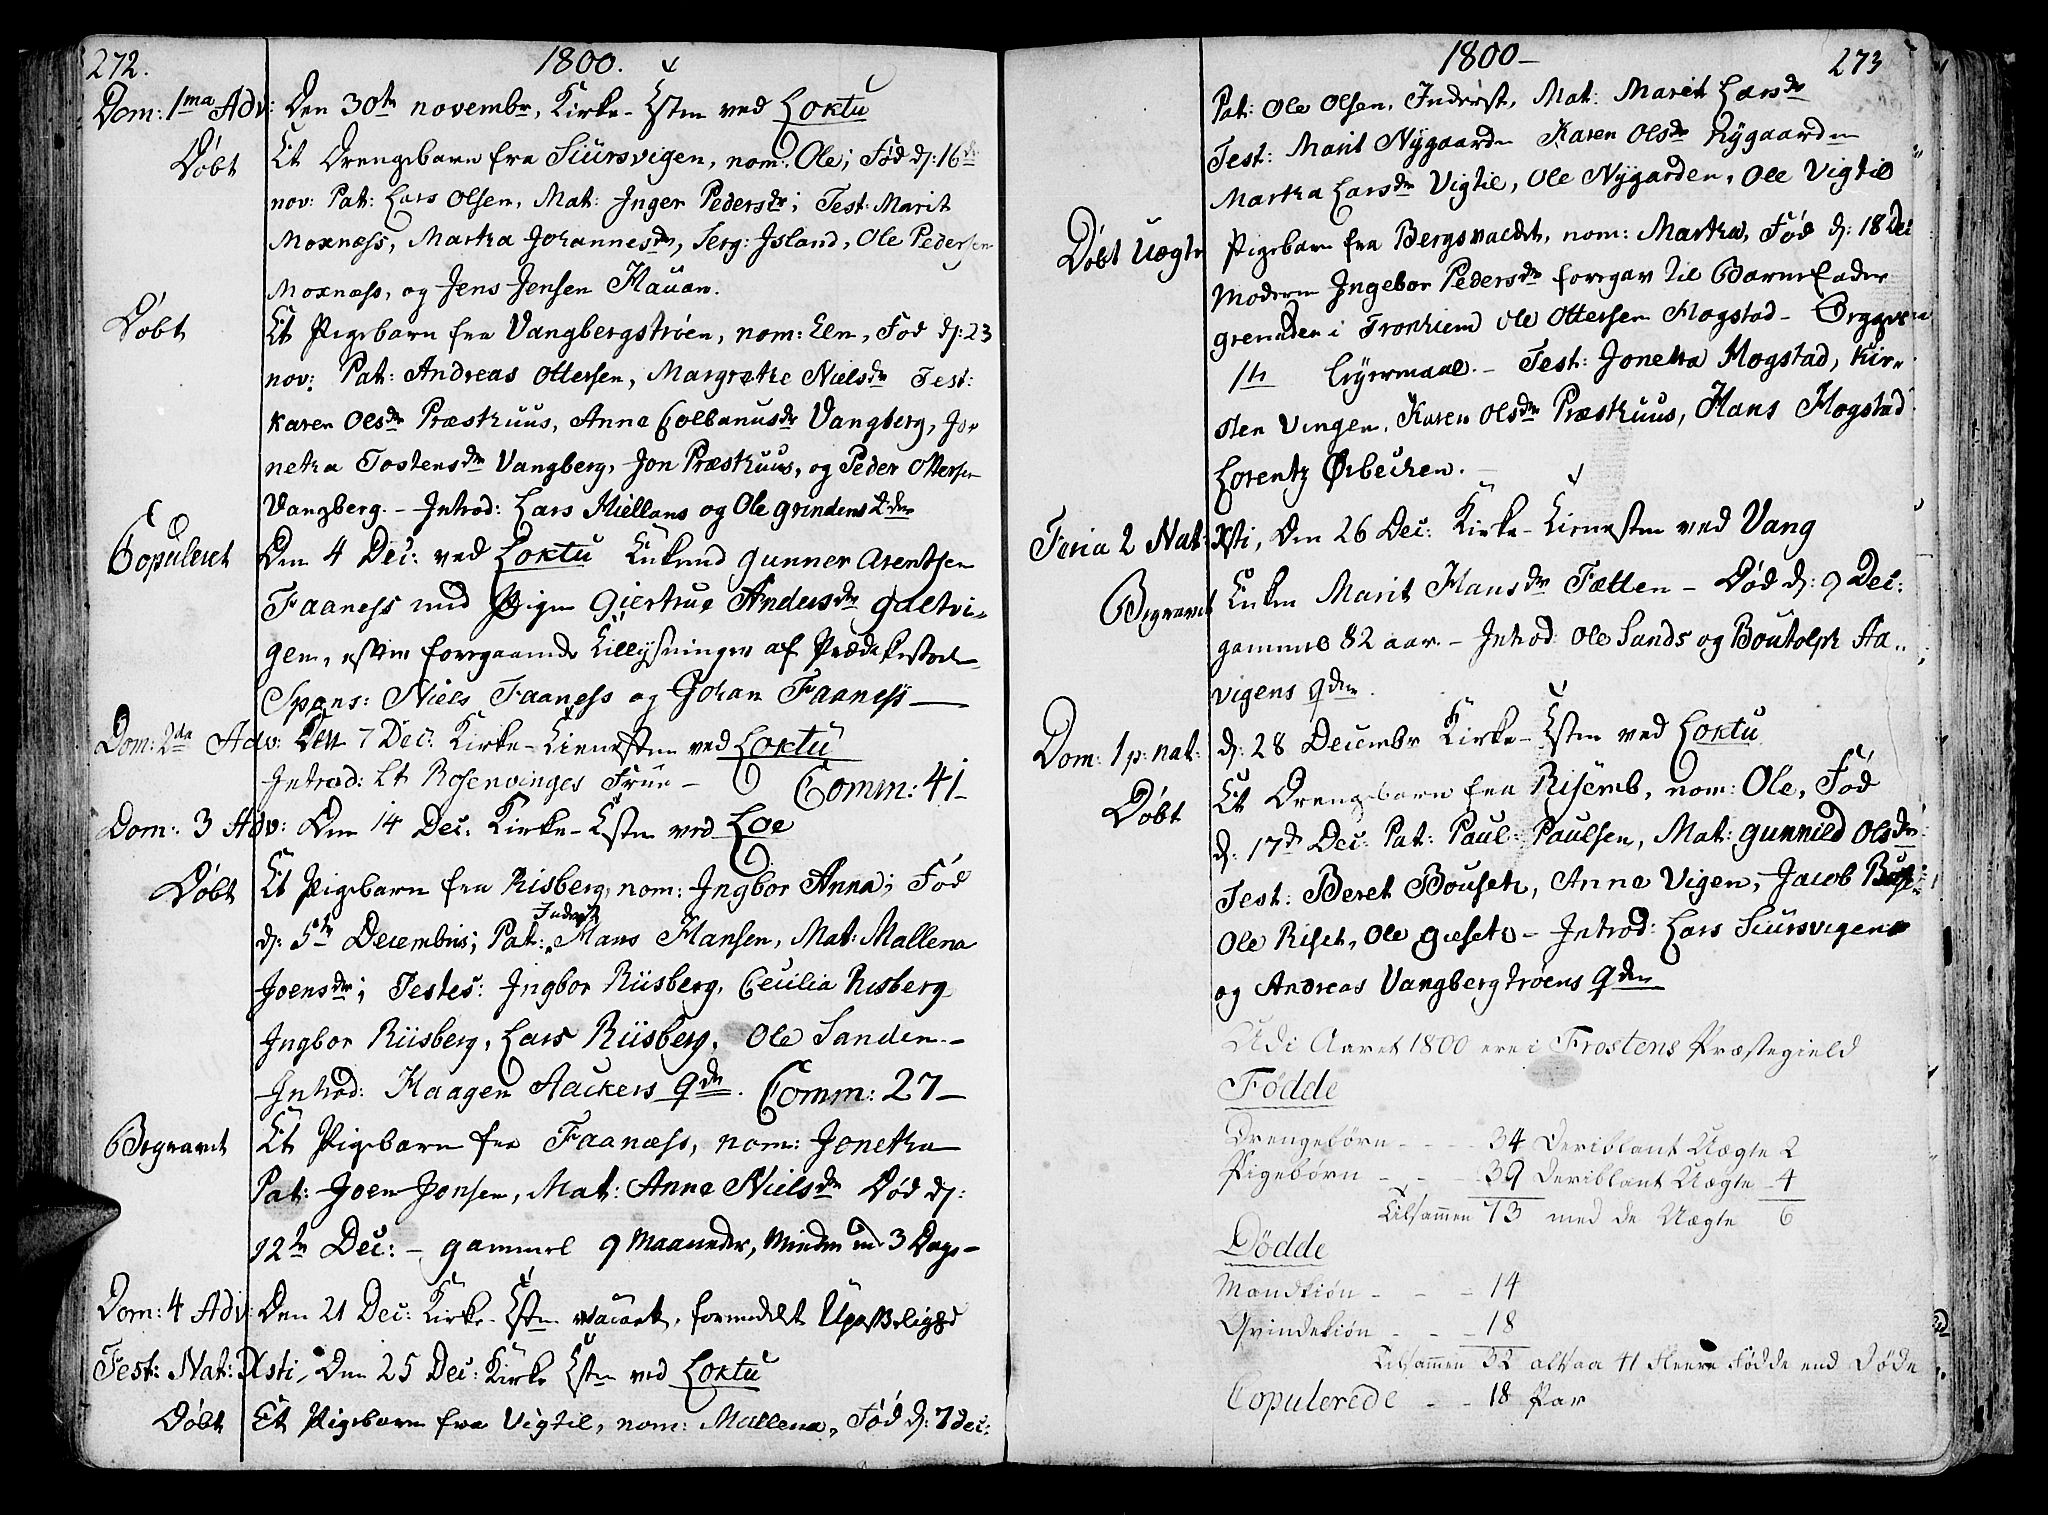 272.
1800.
Dom: 1ma Adv: Den 30te novembr, Kirke-Tsten ved Loktu
Døbt Et Drengebarn fra Siursvigen, nom. Ole; Fød d: 16de
nov: Pat: Lars Olsen, Mat: Inger Pedersdr; Test: Marit
Moxness, Martha Johannesdr, Serg: Island, Ole Pedersen
Moxness, og Jens Jensen Hauan.
Døbt Et Pigebarn fra Vangbergstrøen, nom: Elen, Fød d: 23
nov: Pat: Andreas Ottersen, Margrethe Nielsdr Test:
Karen Olsdr Præsthuus, Anne Colbanusdr Vangberg, Jo-
netha Tostensdr Vangberg, Jon Præsthuus, og Peder Ottersen
Vangberg. - Introd: Lars Hiellans og Ole Grindens
Copuleret Den 4 Dec: ved Loktu Gunner Arentsen
Faaness med Pigen Giertrue Andersdr Galtvi-
gen, efter foregaaende Tillysninger af Prædikestolen
Spons: Niels Faaness og Johan Faaness
Dom: 2da Adv: Den 7 Dec: Kirke-Tienesten ved Loktu
Introd: Lt Rosenvinges Frue - Comm: 41-
Dom: 3 Adv: Den 14 Dec: Kirke-Tsten ved Loe
Døbt Et Pigebarn fra Risberg, nom: Ingbor Anna; Fød
d: 5te Decembris; Pat: Inderst Hans Hansen, Mat: Mallena
Joensdr; Testes: Ingbor Riisberg, Cecilia Risberg
Ingbor Riisberg, Lars Riisberg, Ole Sanden.-
Introd: Haagen Aackers qde. Comm: 27-
Begravet Et Pigebarn fra Faanæss, nom: Jonetha
Pat: Joen Jonsen, Mat: Anne Nielsdr Død d:
12te Dec: - gammel 9 Maaneder, Mindre end 3 Dage-
Dom: 4 Adv: Den 21 Dec: Kirke-Tsten vacant, formedelst Upasselighed
Fest: Nat: Xsti, Den 25 Dec: Kirke Tsten ved Loktu
Døbt Et Pigebarn fra Vigtil, nom: Mallena, Fød d: 7 dec:
1800-
273
Pat: Ole Olsen, Inderst, Mat: Marit Larsdr
Test: Marit Nygaarden Karen Olsdr Nygaarden
Martha Larsdr Vigtil, Ole Nygarden, Ole Vigtil
Døbt Uægte Pigebarn fra Bergsvaldet, nom: Martha, Fød d: 18 Dec
Moderen Ingebor Pedersdr foregav til Barnefader
grenader i Tronhiem Ole Ottersen Mogstad -
1te Leyermaal. - Test: Jonetha Mogstad, Kir-
sten Vingen, Karen Olsdr Præsthuus, Hans Mogstad
Lorentz Ørbechen. -
Feria 2 Nat: Xsti, Den 26 Dec: Kirke-Tienesten ved Vang
Begravet Enken Marit Hansdr Fætten - Død d: 9 Dec:
gammel 82 aar. - Introd: Ole Sands og Boutolph Aa-
vigens qder.
Dom: 1 p: nat: d: 28 Decembr Kirke-Tsten ved Loktu
Døbt Et Drengebarn fra Risemb, nom: Ole, Fød
d: 17de Dec: Pat: Paul Paulsen, Mat: Gunnild Olsdr
Test: Beret Bouseth, Anne Vigen, Jacob
Ole Riset, Ole Gieseth - Introd: Lars Siursvigens
og Andreas Vangbergtrøens qder
Udi Aaret 1800 ere i Frostens Præstegield
Fødde
Drengebørn - - - 34 Deriblant Uægte 2
Pigebørn - - - 39 Deriblant Uægte 4
Tilsammen 73 med de Uægte 6
Dødde
Mandkiøn - - - 14
Qvindekiøn - - - 18
Tilsammen 32 altsaa 41 fleere Fødde end Døde
Copulerede - - 18 Par